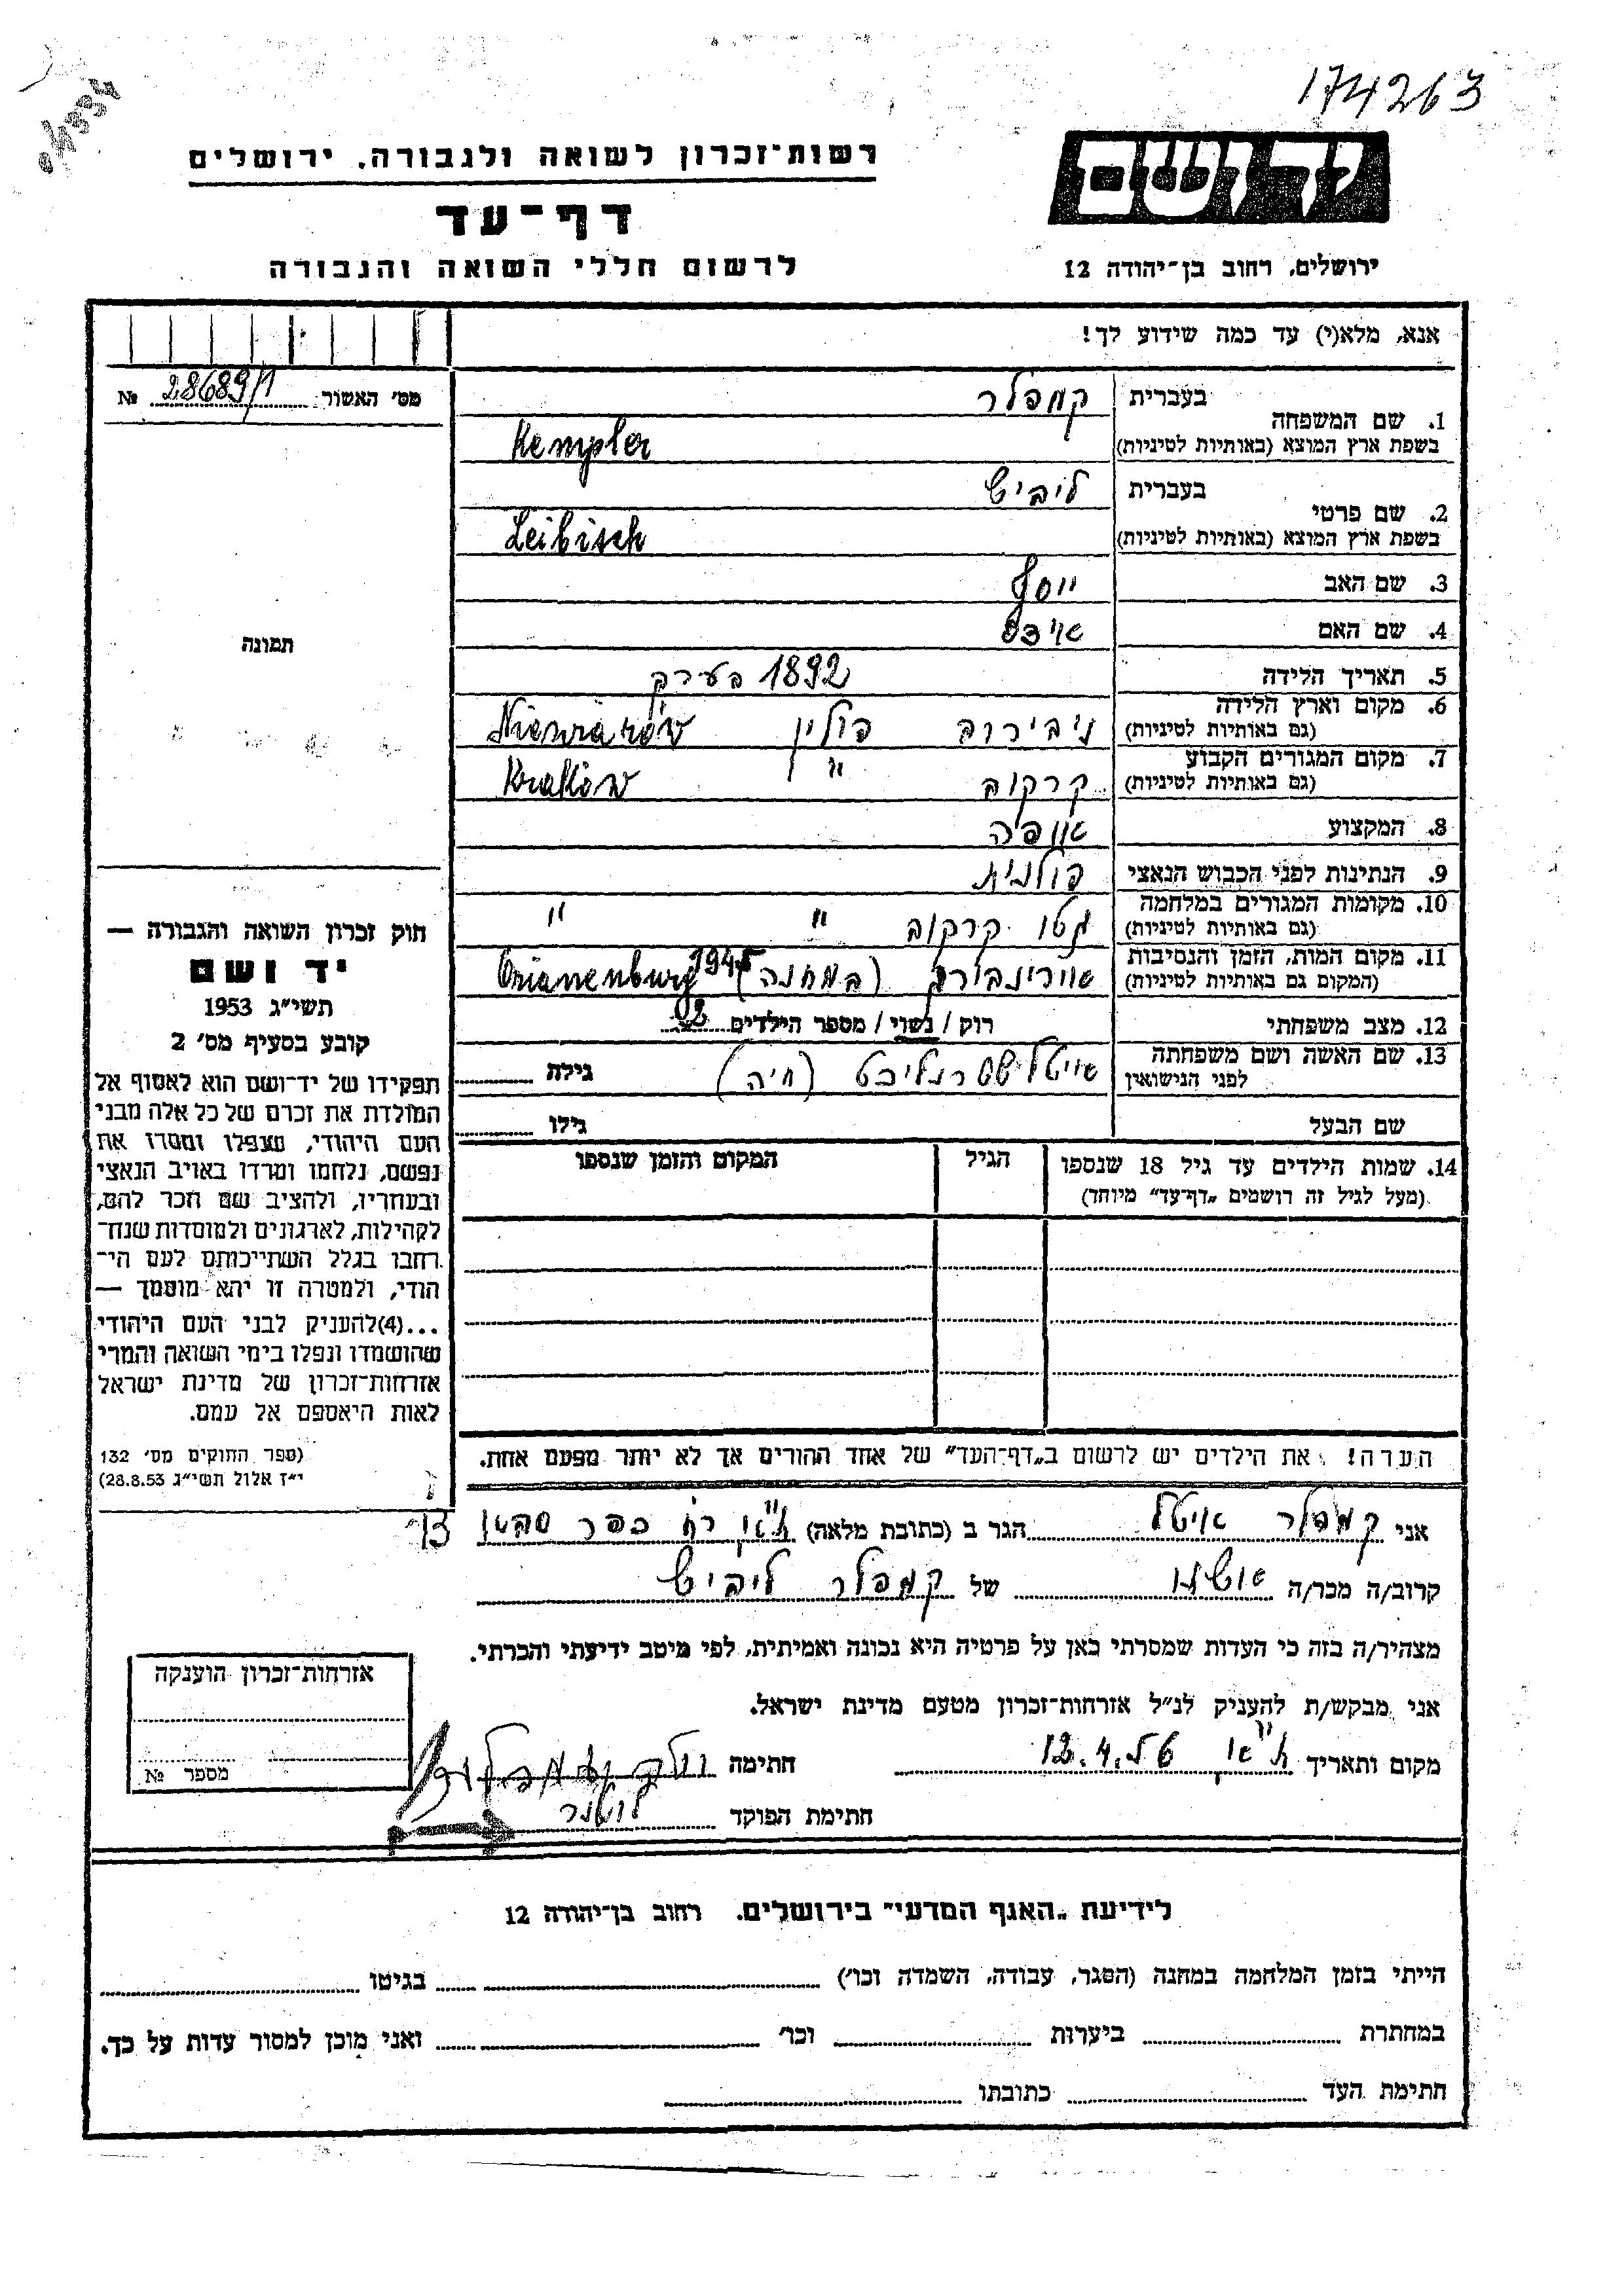 174263
רשות־זכרון לשואה ולגבורה, ירושלים
יד ושם
דף־עד
לרשום חללי השואה והגבורה
ירושלים, רחוב בן־יהודה 12
אנא, מלא(י) עד כמה שידוע לך!
מס׳ האשור 28689/1 №
1. שם המשפחה בעברית קמפלר
בשפת ארץ המוצא (באותיות לטיניות) Kempler
2. שם פרטי בעברית ליביש
בשפת ארץ המוצא (באותיות לטיניות) Leibisch
3. שם האב יוסף
4. שם האם
5. תאריך הלידה 1892 בערך
6. מקום וארץ הלידה
(גם באותיות לטיניות) פולין
7. מקום המגורים הקבוע
(גם באותיות לטיניות) קרקוב " Kraków
8. המקצוע אופה
9. הנתינות לפני הכבוש הנאצי פולנית
10. מקומות המגורים במלחמה
(גם באותיות לטיניות) גטו קרקוב " "
11. מקום המות, הזמן והנסיבות
(המקום גם באותיות לטיניות) (במחנה) Orianenburg
12. מצב משפחתי רוק / נשוי / מספר הילדים 2
13. שם האשה ושם משפחתה
לפני הנישואין (חיה) גילה
שם הבעל גילו
14. שמות הילדים עד גיל 18 שנספו הגיל המקום והזמן שנספו
(מעל לגיל זה רושמים „דף־עד״ מיוחד)
הערה! את הילדים יש לרשום ב„דף־העד״ של אחד ההורים אך לא יותר מפעם אחת.
תמונה
חוק זכרון השואה והגבורה —
יד ושם
תשי״ג 1953
קובע בסעיף מס׳ 2
תפקידו של יד־ושם הוא לאסוף אל
המולדת את זכרם של כל אלה מבני
העם היהודי, שנפלו ומסרו את
נפשם, נלחמו ומרדו באויב הנאצי
ובעוזריו, ולהציב שם וזכר להם,
לקהילות, לארגונים ולמוסדות שנח־
רבו בגלל השתייכותם לעם הי־
הודי, ולמטרה זו יהא מוסמך —
...(4)להעניק לבני העם היהודי
שהושמדו ונפלו בימי השואה והמרי
אזרחות־זכרון של מדינת ישראל
לאות היאספם אל עמם.
(ספר החוקים מס׳ 132
י״ז אלול תשי״ג 28.8.53)
אני קמפלר הגר ב (כתובת מלאה) ת"א רח כפר סבא
קרוב/ה מכר/ה אשתו של קמפלר ליביש
מצהיר/ה בזה כי העדות שמסרתי כאן על פרטיה היא נכונה ואמיתית, לפי מיטב ידיעתי והכרתי.
אני מבקש/ת להעניק לנ״ל אזרחות־זכרון מטעם מדינת ישראל.
מקום ותאריך ת"א 12.4. חתימה
חתימת הפוקד
אזרחות־זכרון הוענקה
מספר №
לידיעת „האגף המדעי״ בירושלים. רחוב בן־יהודה 12
הייתי בזמן המלחמה במחנה (הסגר, עבודה, השמדה וכו׳) בגיטו
במחתרת ביערות וכו׳ ואני מוכן למסור עדות על כך.
חתימת העד כתובתו